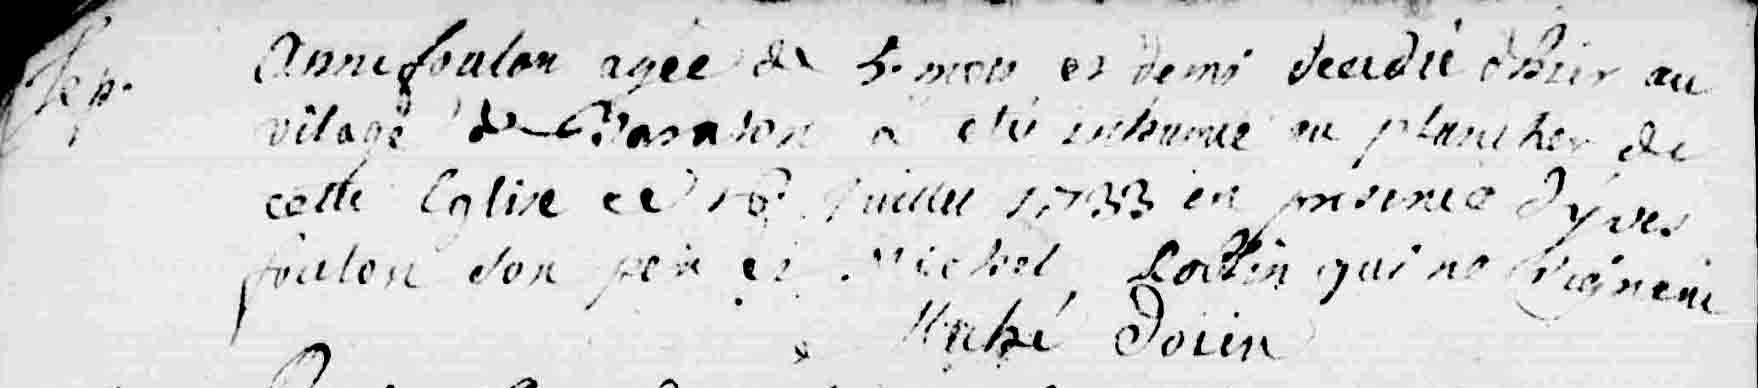 Sep.
Anne foulon agée de 5. mois et demi decedée d'hier au
vilage de a été inhumée au plancher de
cette Eglise ce 16 Juillet 1733 en presence d'yves
foulon son pere et Michel qui ne signent
Dorin